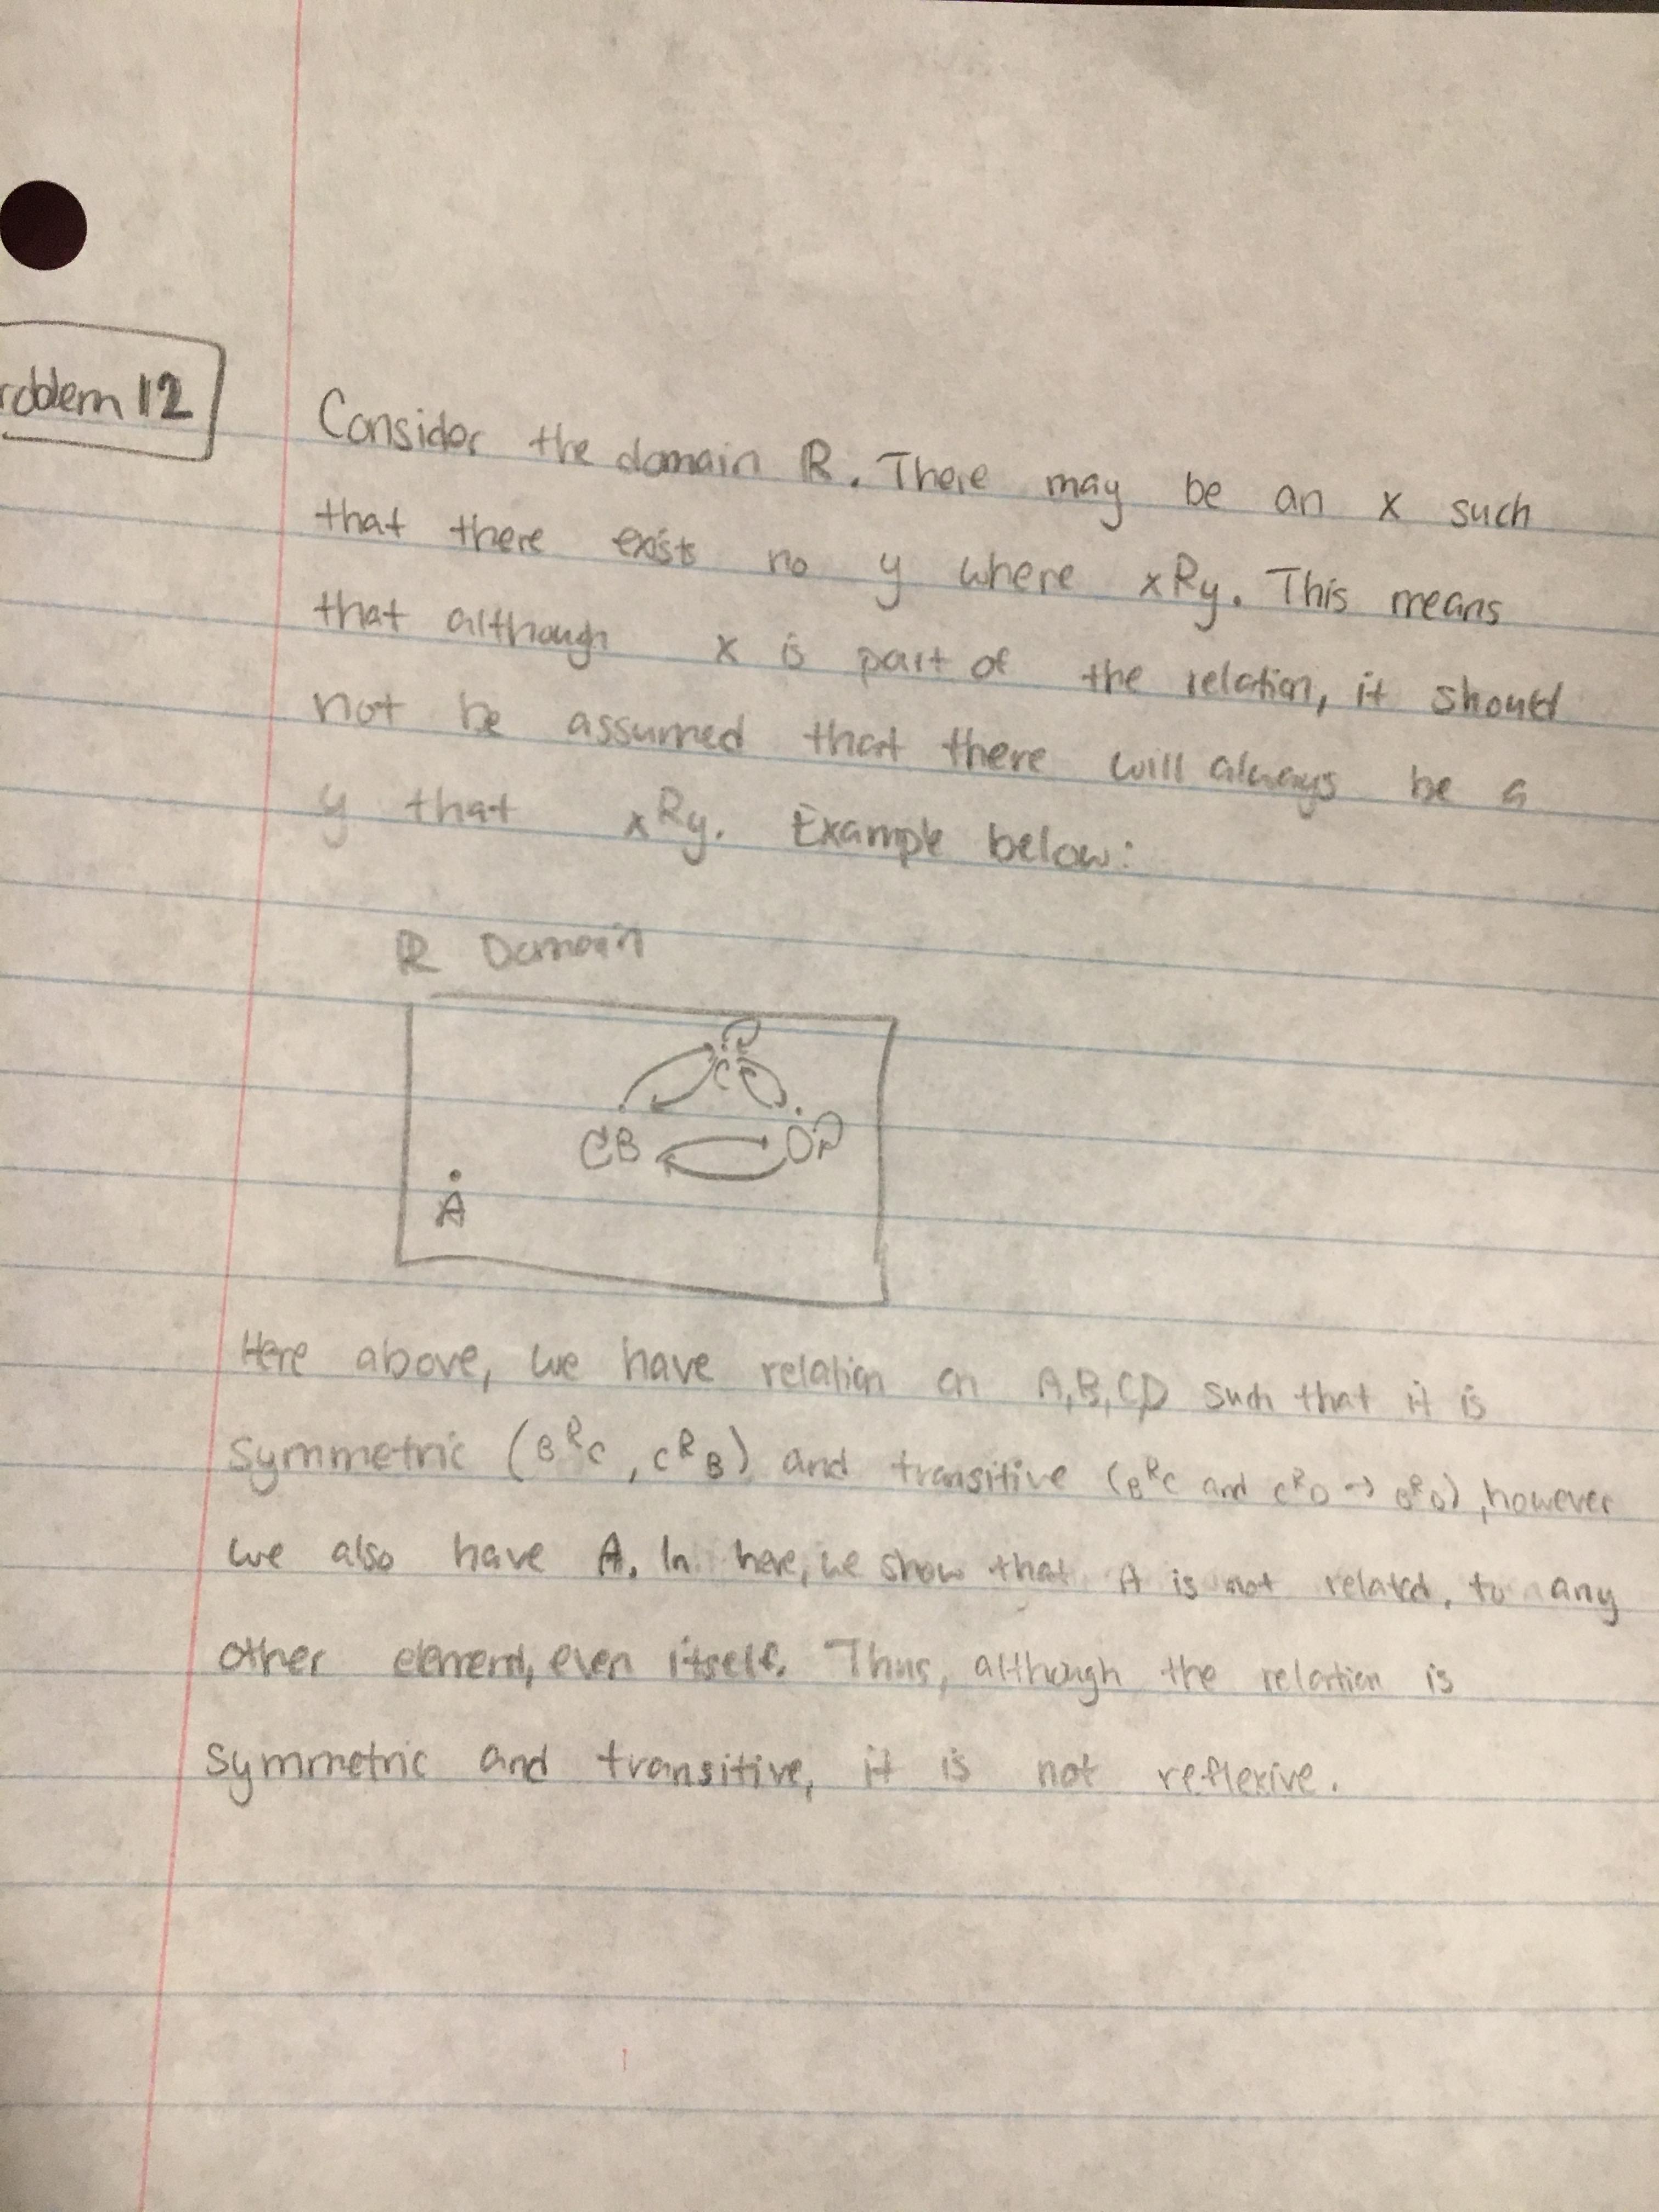 roblem 12
Consider the domain ℝ. There may be an x such
that there exists no y where xRy. This means
that although x is part of the relation, it should
not be assumed that there will always be a
y that xRy. Example below:
ℝ Domain
C
B D
A
Here above, we have relation on A,B,C,D such that it is
symmetric (BRC, CRB) and transitive (BRC and CRD → BRD), however
we also have A. In here, we show that A is not related, to any
other element, even itself. Thus, although the relation is
symmetric and transitive, it is not reflexive.